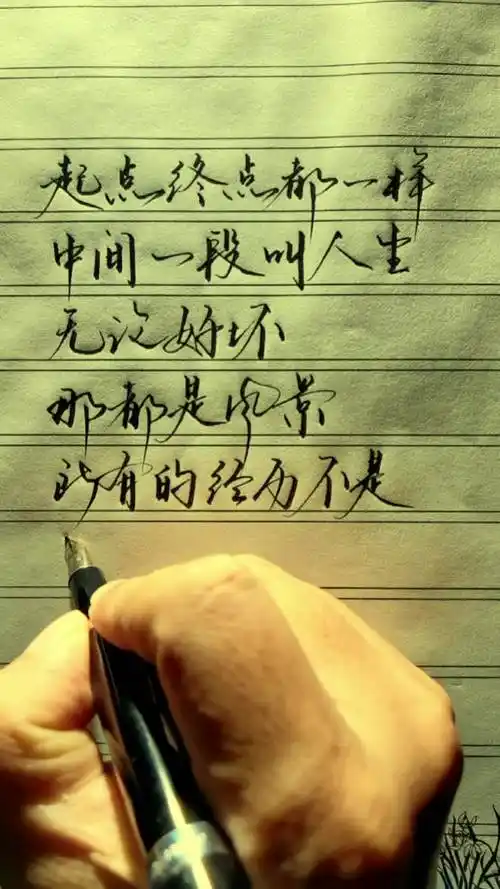 起点终点都一样
中间一段叫人生
无论好坏
那都是风景
所有的经历不是